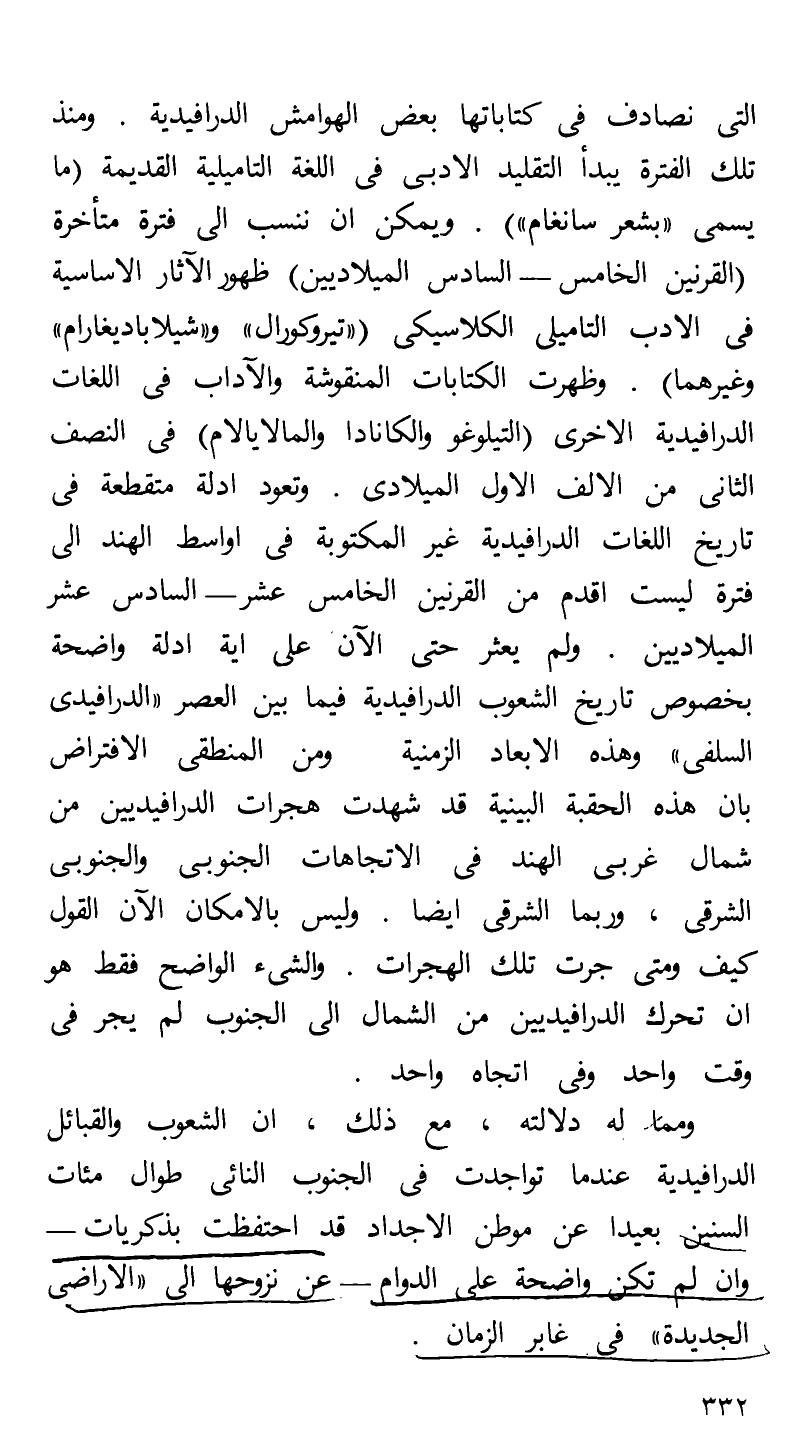 التى نصادف فى كتاباتها بعض الهوامش الدرافيدية . ومنذ
تلك الفترة يبدأ التقليد الادبى فى اللغة التاميلية القديمة (ما
يسمى «بشعر سانغام») . ويمكن ان ننسب الى فترة متأخرة
(القرنين الخامس — السادس الميلاديين) ظهور الآثار الاساسية
فى الادب التاميلى الكلاسيكى («تيروكورال» و«شيلاباديغارام»
وغيرهما) . وظهرت الكتابات المنقوشة والآداب فى اللغات
الدرافيدية الاخرى (التيلوغو والكانادا والمالايالام) فى النصف
الثانى من الالف الاول الميلادى . وتعود ادلة متقطعة فى
تاريخ اللغات الدرافيدية غير المكتوبة فى اواسط الهند الى
فترة ليست اقدم من القرنين الخامس عشر — السادس عشر
الميلاديين . ولم يعثر حتى الآن على اية ادلة واضحة
بخصوص تاريخ الشعوب الدرافيدية فيما بين العصر «الدرافيدى
السلفى» وهذه الابعاد الزمنية ومن المنطقى الافتراض
بان هذه الحقبة البينية قد شهدت هجرات الدرافيديين من
شمال غربى الهند فى الاتجاهات الجنوبى والجنوبى
الشرقى ، وربما الشرقى ايضا . وليس بالامكان الآن القول
كيف ومتى جرت تلك الهجرات . والشىء الواضح فقط هو
ان تحرك الدرافيديين من الشمال الى الجنوب لم يجر فى
وقت واحد وفى اتجاه واحد .
ومما له دلالته ، مع ذلك ، ان الشعوب والقبائل
الدرافيدية عندما تواجدت فى الجنوب النائى طوال مئات
السنين بعيدا عن موطن الاجداد قد احتفظت بذكريات —
وان لم تكن واضحة على الدوام — عن نزوحها الى «الاراضى
الجديدة» فى غابر الزمان .
٣٣٢